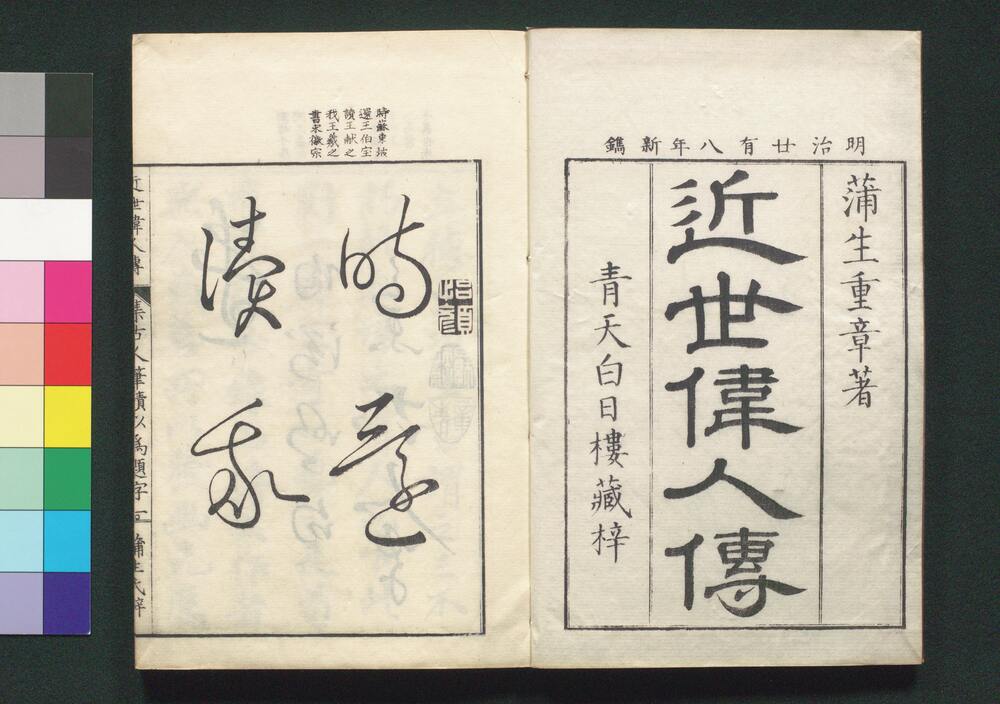 明治廿有八年新鐫
蒲生重章著
近世偉人傳
青天白日樓藏梓
時蘇東坡
還王伯宝
讀王献之
我王羲之
書宋徽宗
怡顔
時還
讀我
近世偉人傳
集古人筆蹟以爲題字
蒲生氏梓